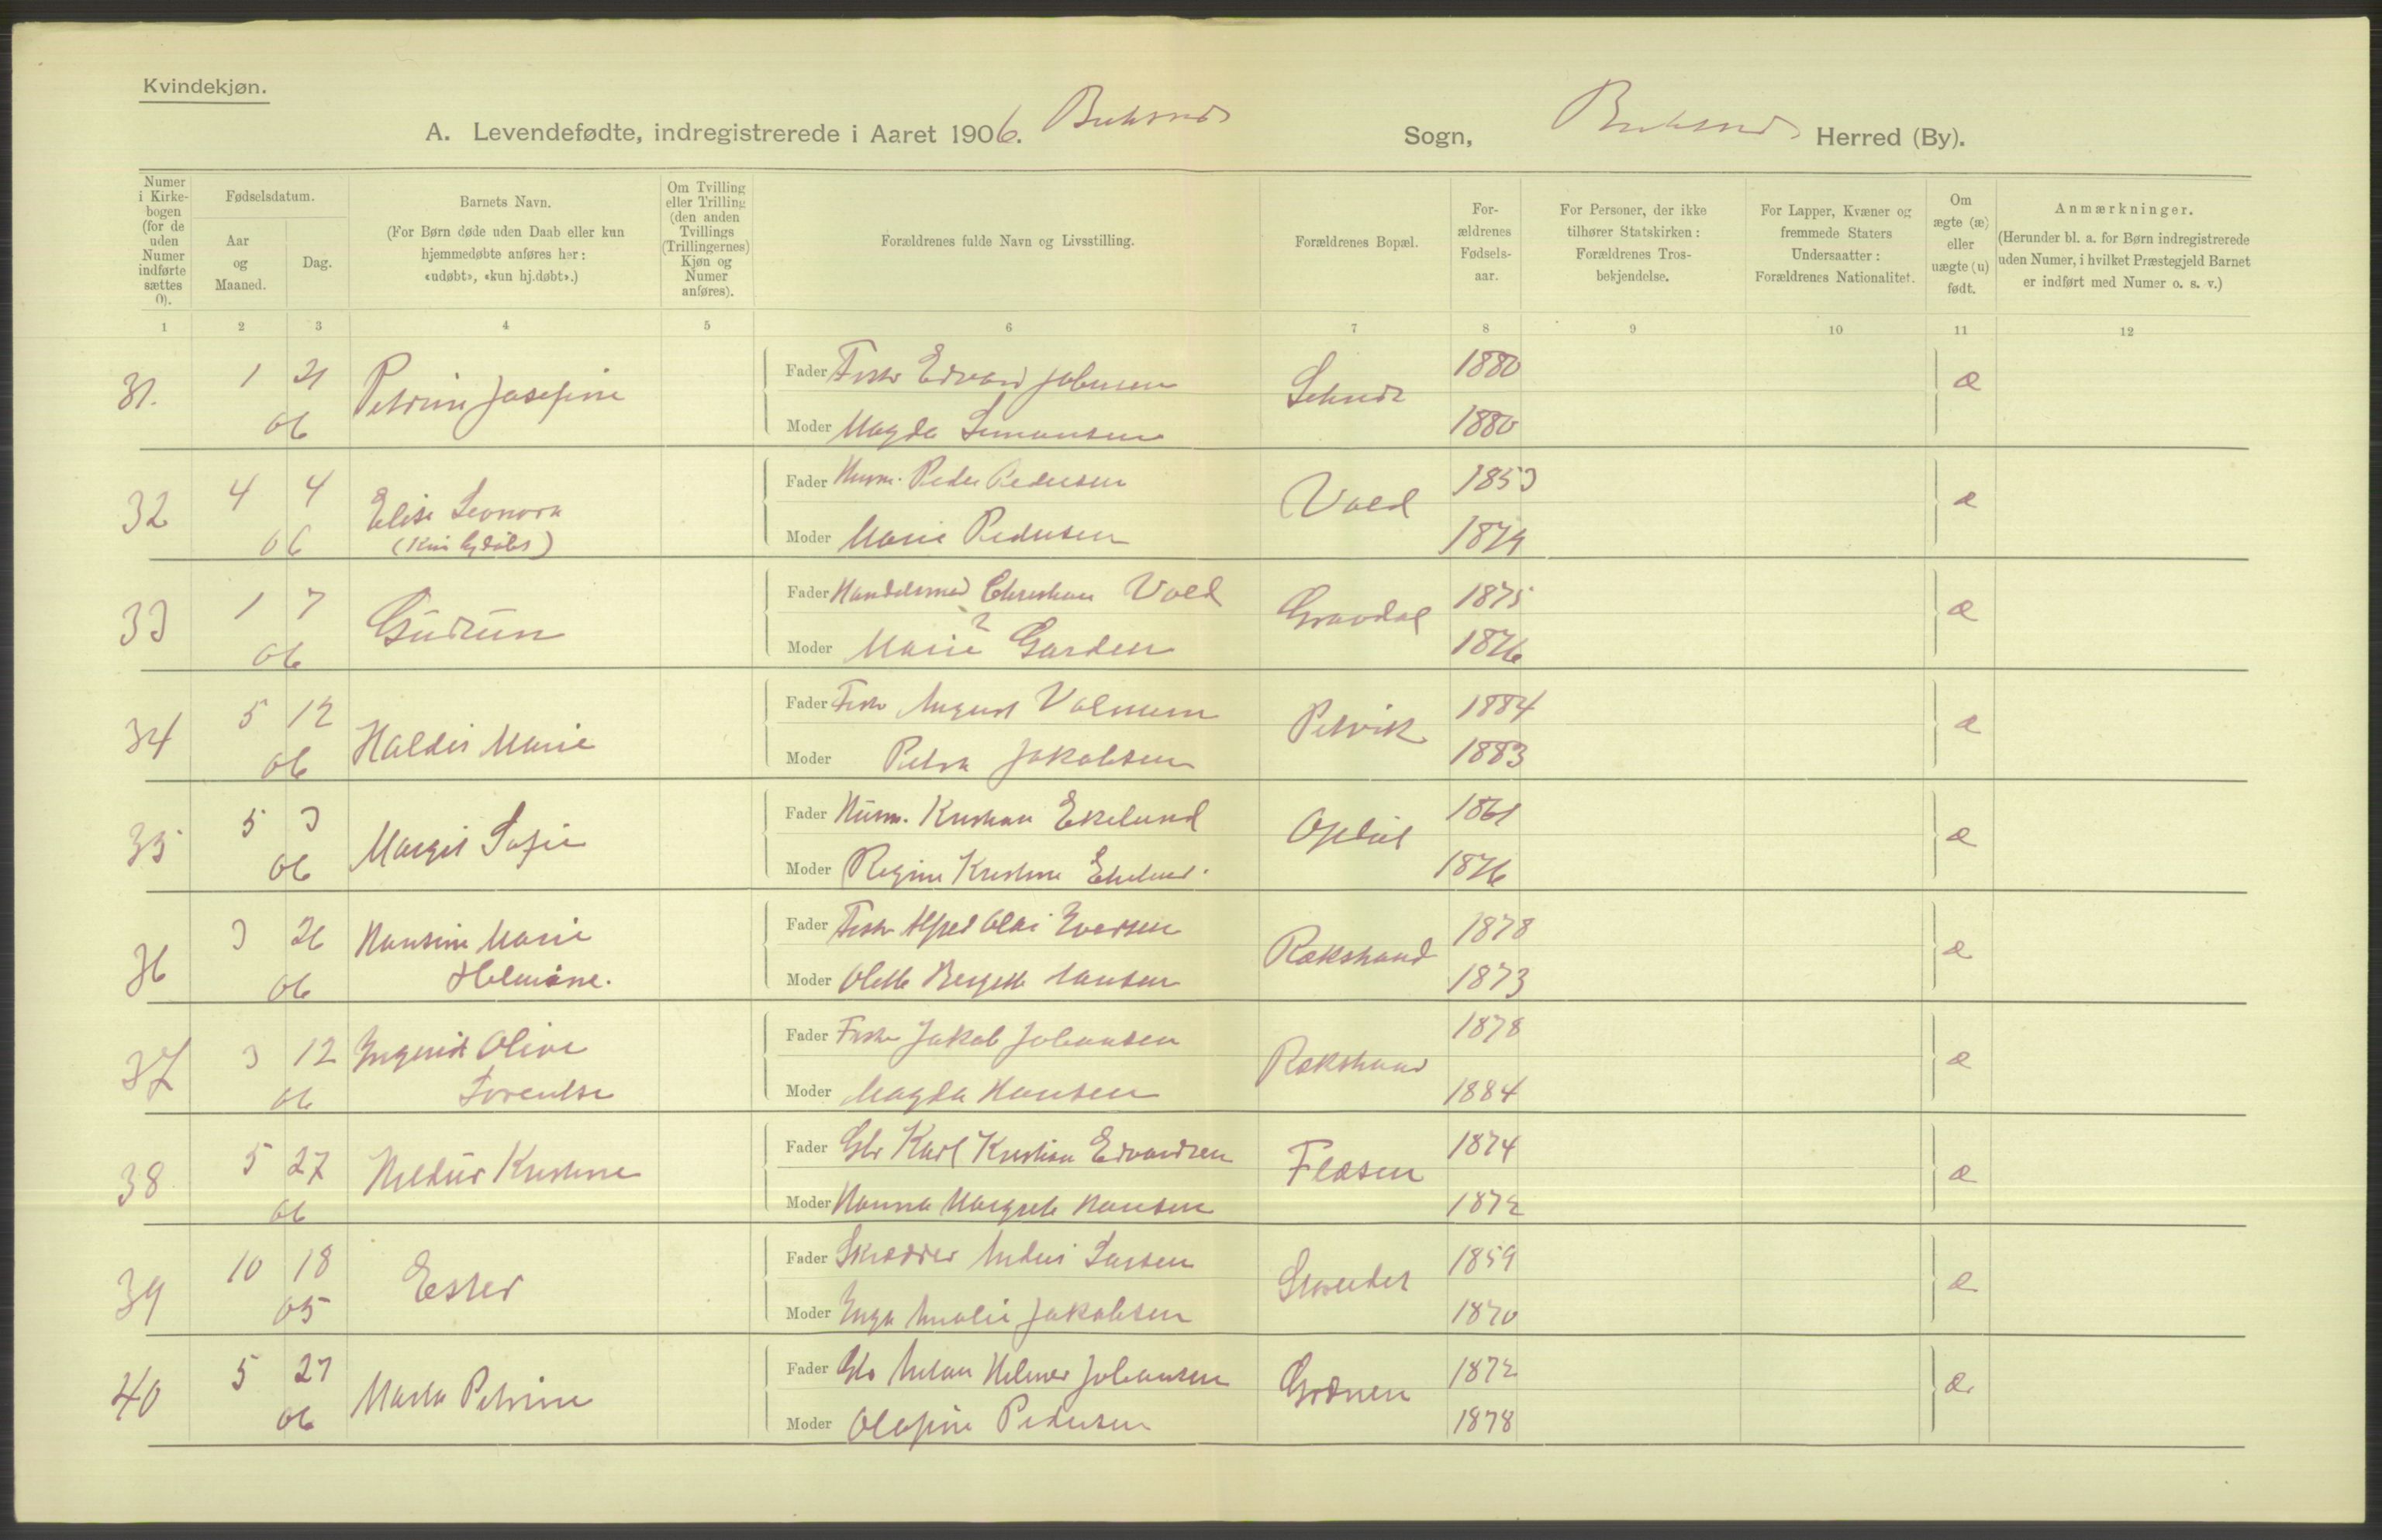 Kvindekjøn.
A. Levendefødte, indregistrerede i Aaret 1906. Buksnes Sogn, Buksnes Herred (By).
Numer i Kirkebogen (for de uden Numer indførte sættes 0).
Fødselsdatum.
Aar og Maaned.
Dag.
Barnets Navn.
(For Børn døde uden Daab eller kun hjemmedøbte anføres her: «udøbt», «kun hj.døbt».)
Om Tvilling eller Trilling (den anden Tvillings (Trillingernes) Kjøn og Numer anføres).
Forældrenes fulde Navn og Livsstilling.
Forældrenes Bopæl.
Forældrenes Fødselsaar.
For Personer, der ikke tilhører Statskirken: Forældrenes Trosbekjendelse.
For Lapper, Kvæner og fremmede Staters Undersaatter: Forældrenes Nationalitet.
Om ægte (æ) eller uægte (u) født.
Anmærkninger.
(Herunder bl. a. for Børn indregistrerede uden Numer, i hvilket Præstegjeld Barnet er indført med Numer o. s. v.)
1 2 3 4 5 6 7 8 9 10 11 12
31. 1 21 06 Petrine Josefine
Fader Fisker Edvard Johnsen 1880 æ
Moder Magda Simonsen 1880
32 4 4 06 Elise Leonora
Fader Husm. Peder Pedersen Vold 1853 æ
Moder Marie Pedersen 1874
33 1 7 06 Gudrun
Fader Handelsmad Christian Vold Gravdal 1875 æ
Moder Marie ? Garden 1876
34 5 12 06 Haldis Marie
Fader Fisker August Valnum Petvik 1884 æ
Moder Petra Jakobsen 1883
35 5 3 06 Margit Sofie
Fader Husm. Kristian Ekelund Opdøl 1861 æ
Moder Regine Kristine Ekelund. 1876
36 3 26 06 Hansine Marie Helmine.
Fader Fisker Alfred Olai Evertsen Rækstrand 1878 æ
Moder Olette Bergette Hansen 1873
37 3 12 06 Ingerid Olive Lorentse
Fader Fisker Jakob Johansen Rækstrand 1878 æ
Moder Magda Hansen 1884
38 5 27 06 Hildur Kristine
Fader Gbr Karl Kristian Edvardsen Flæsen 1874 æ
Moder Hanna Margrete Hansen 1872
39 10 18 05 Ester
Fader Skrædder Anders Larsen 1859 æ
Moder Inga Amalie Jakobsen 1870
40 5 27 06 Marta Petrine
Fader Gbr Helmer Johansen 1872 æ
Moder Olefine Pedersen 1878